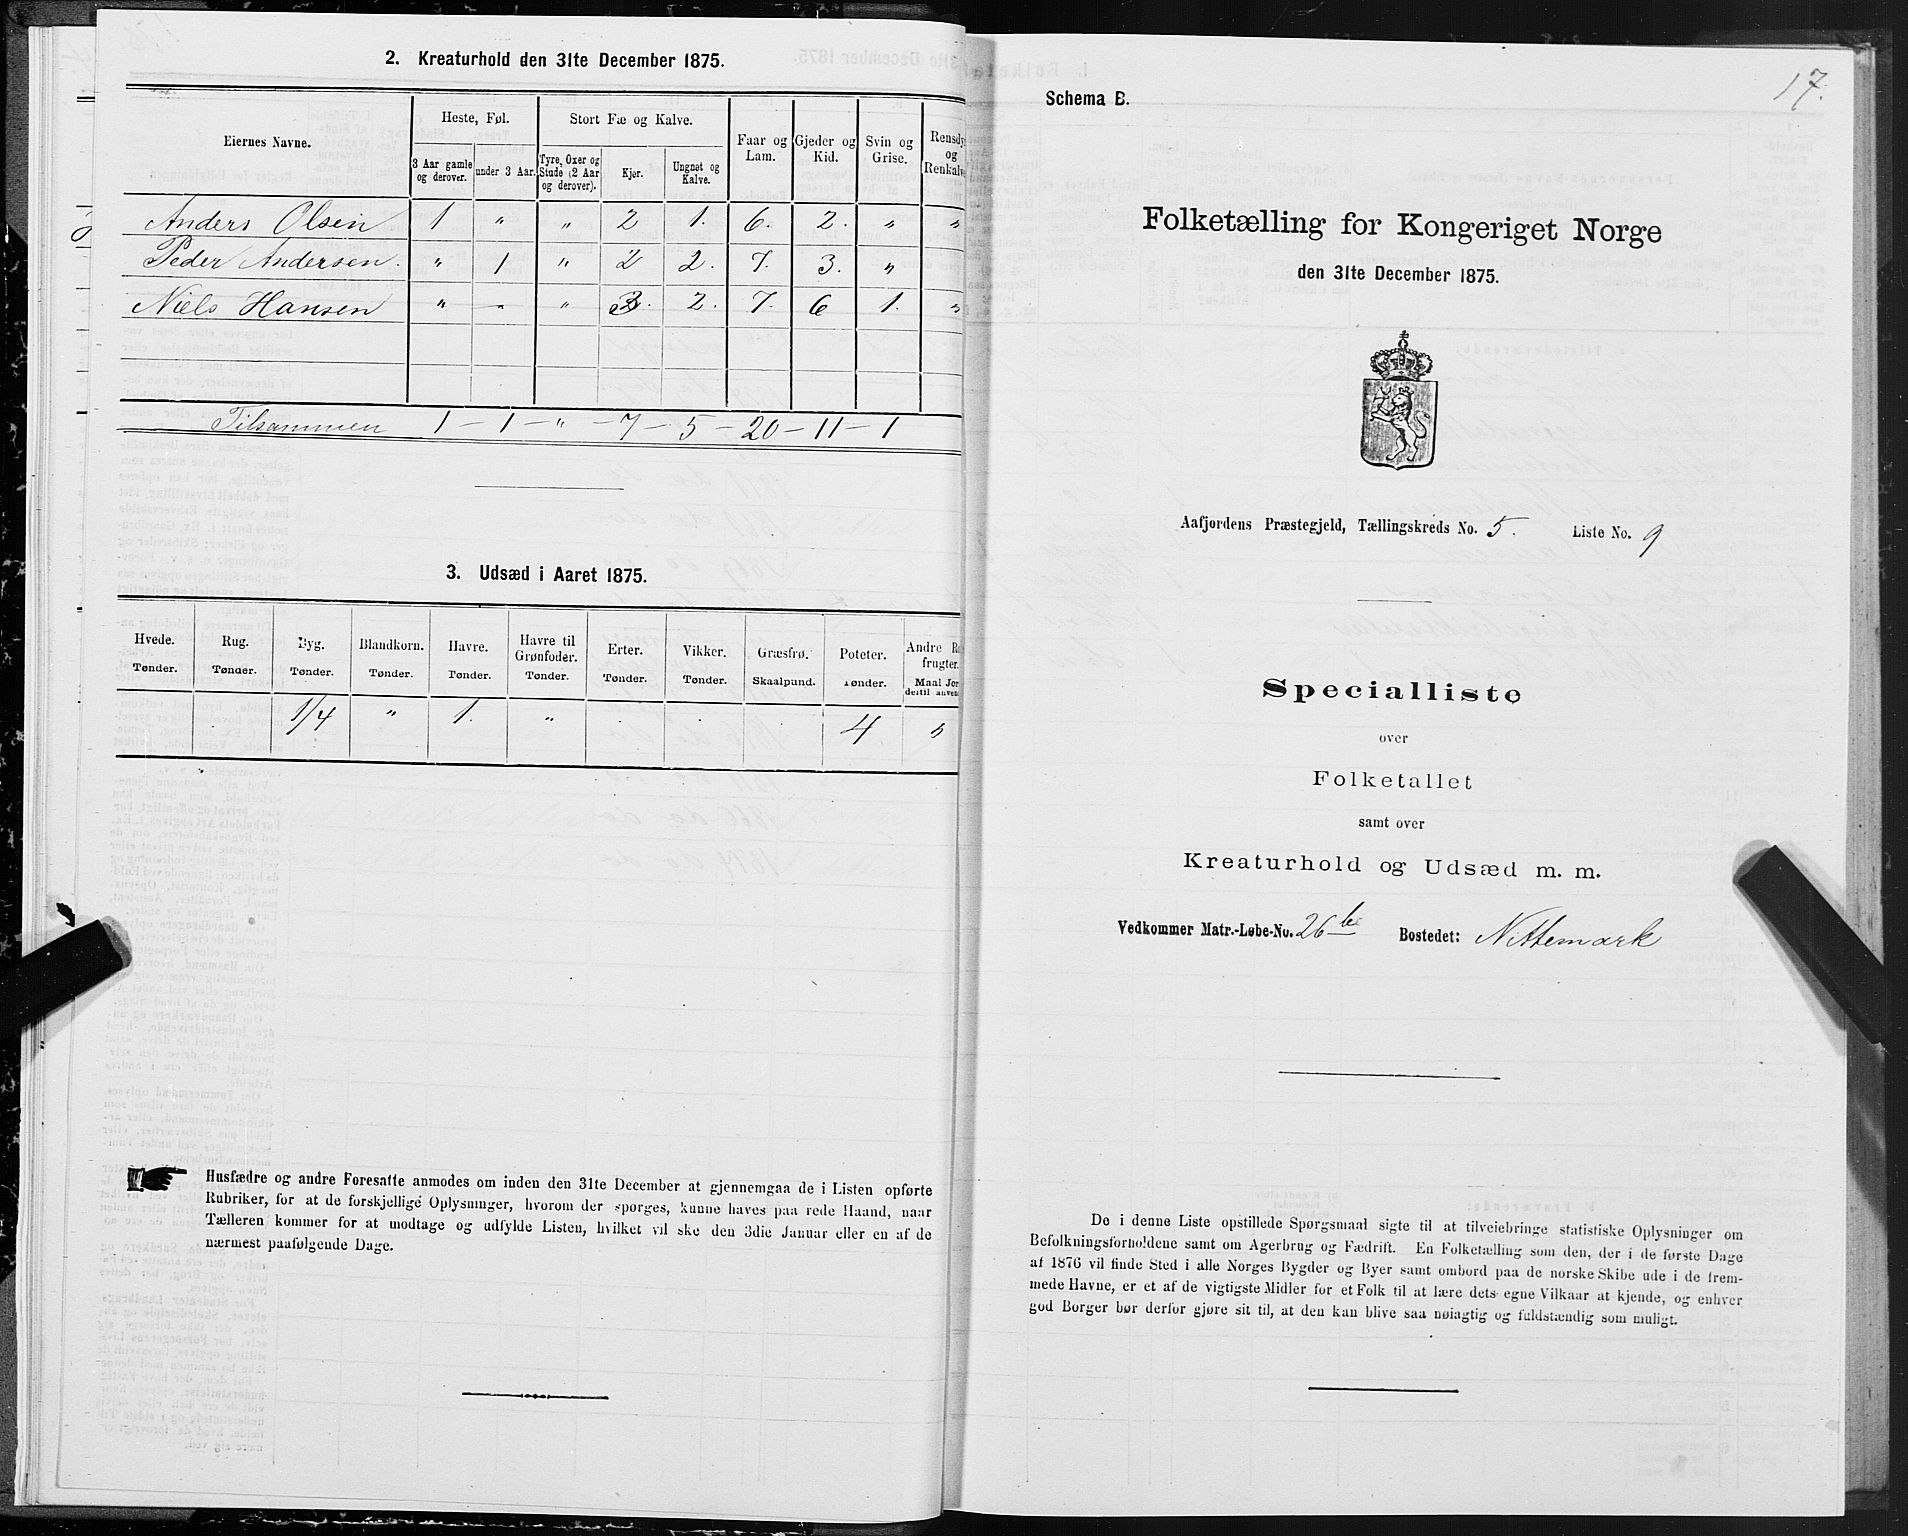 2. Kreaturhold den 31te December 1875.
Eiernes Navne.
Heste, Føl.
Stort Fæ og Kalve.
Faar og Lam.
Gjeder og Kid.
Svin og Grise.
Rensdy og Renkalve
3 Aar gamle og derover.
under 3 Aar.
Tyre, Oxer og Stude (2 Aar og derover).
Kjør.
Ungnøt og Kalve.
Anders Olsen 1 " " 2 1. 6. 2. " "
Peder Andersen. " 1 " 2 2. 7. 3. "
Niels Hansen " - " 3. 2. 7. 6 1. "
Tilsammen 1 – 1 – " – 7 – 5 – 20 – 11 – 1
3. Udsæd i Aaret 1875.
Hvede. Rug. Byg. Blandkorn. Havre. Havre til Grønfoder. Erter. Vikker. Græsfrø. Poteter. Andre R frugter.
Tønder. Tønder. Tønder. Tønder. Tønder. Tønder. Tønder. Tønder. Skaalpund. Tønder. Maal Jor dertil anven
1/4 " 1. " 4 "
Husfædre og andre Foresatte anmodes om inden den 31te December at gjennemgaa de i Listen opførte
Rubriker, for at de forskjellige Oplysninger, hvorom der spørges, kunne haves paa rede Haand, naar
Tælleren kommer for at modtage og udfylde Listen, hvilket vil ske den 3die Januar eller en af de
nærmest paafølgende Dage.
17.
Schema B.
Folketælling for Kongeriget Norge
den 31te December 1875.
Aafjordens Præstegjeld, Tællingskreds No. 5. Liste No. 9
Specialliste
over
Folketallet
samt over
Kreaturhold og Udsæd m. m.
Vedkommer Matr.-Løbe-No. 26 b Bostedet: Nittemark
De i denne Liste opstillede Spørgsmaal sigte til at tilveiebringe statistiske Oplysninger om
Befolkningsforholdene samt om Agerbrug og Fædrift. En Folketælling som den, der i de første Dage
af 1876 vil finde Sted i alle Norges Bygder og Byer samt ombord paa de norske Skibe ude i de frem-
mede Havne, er et af de vigtigste Midler for et Folk til at lære dets egne Vilkaar at kjende, og enhver
god Borger bør derfor gjøre sit til, at den kan blive saa nøiagtig og fuldstændig som muligt.